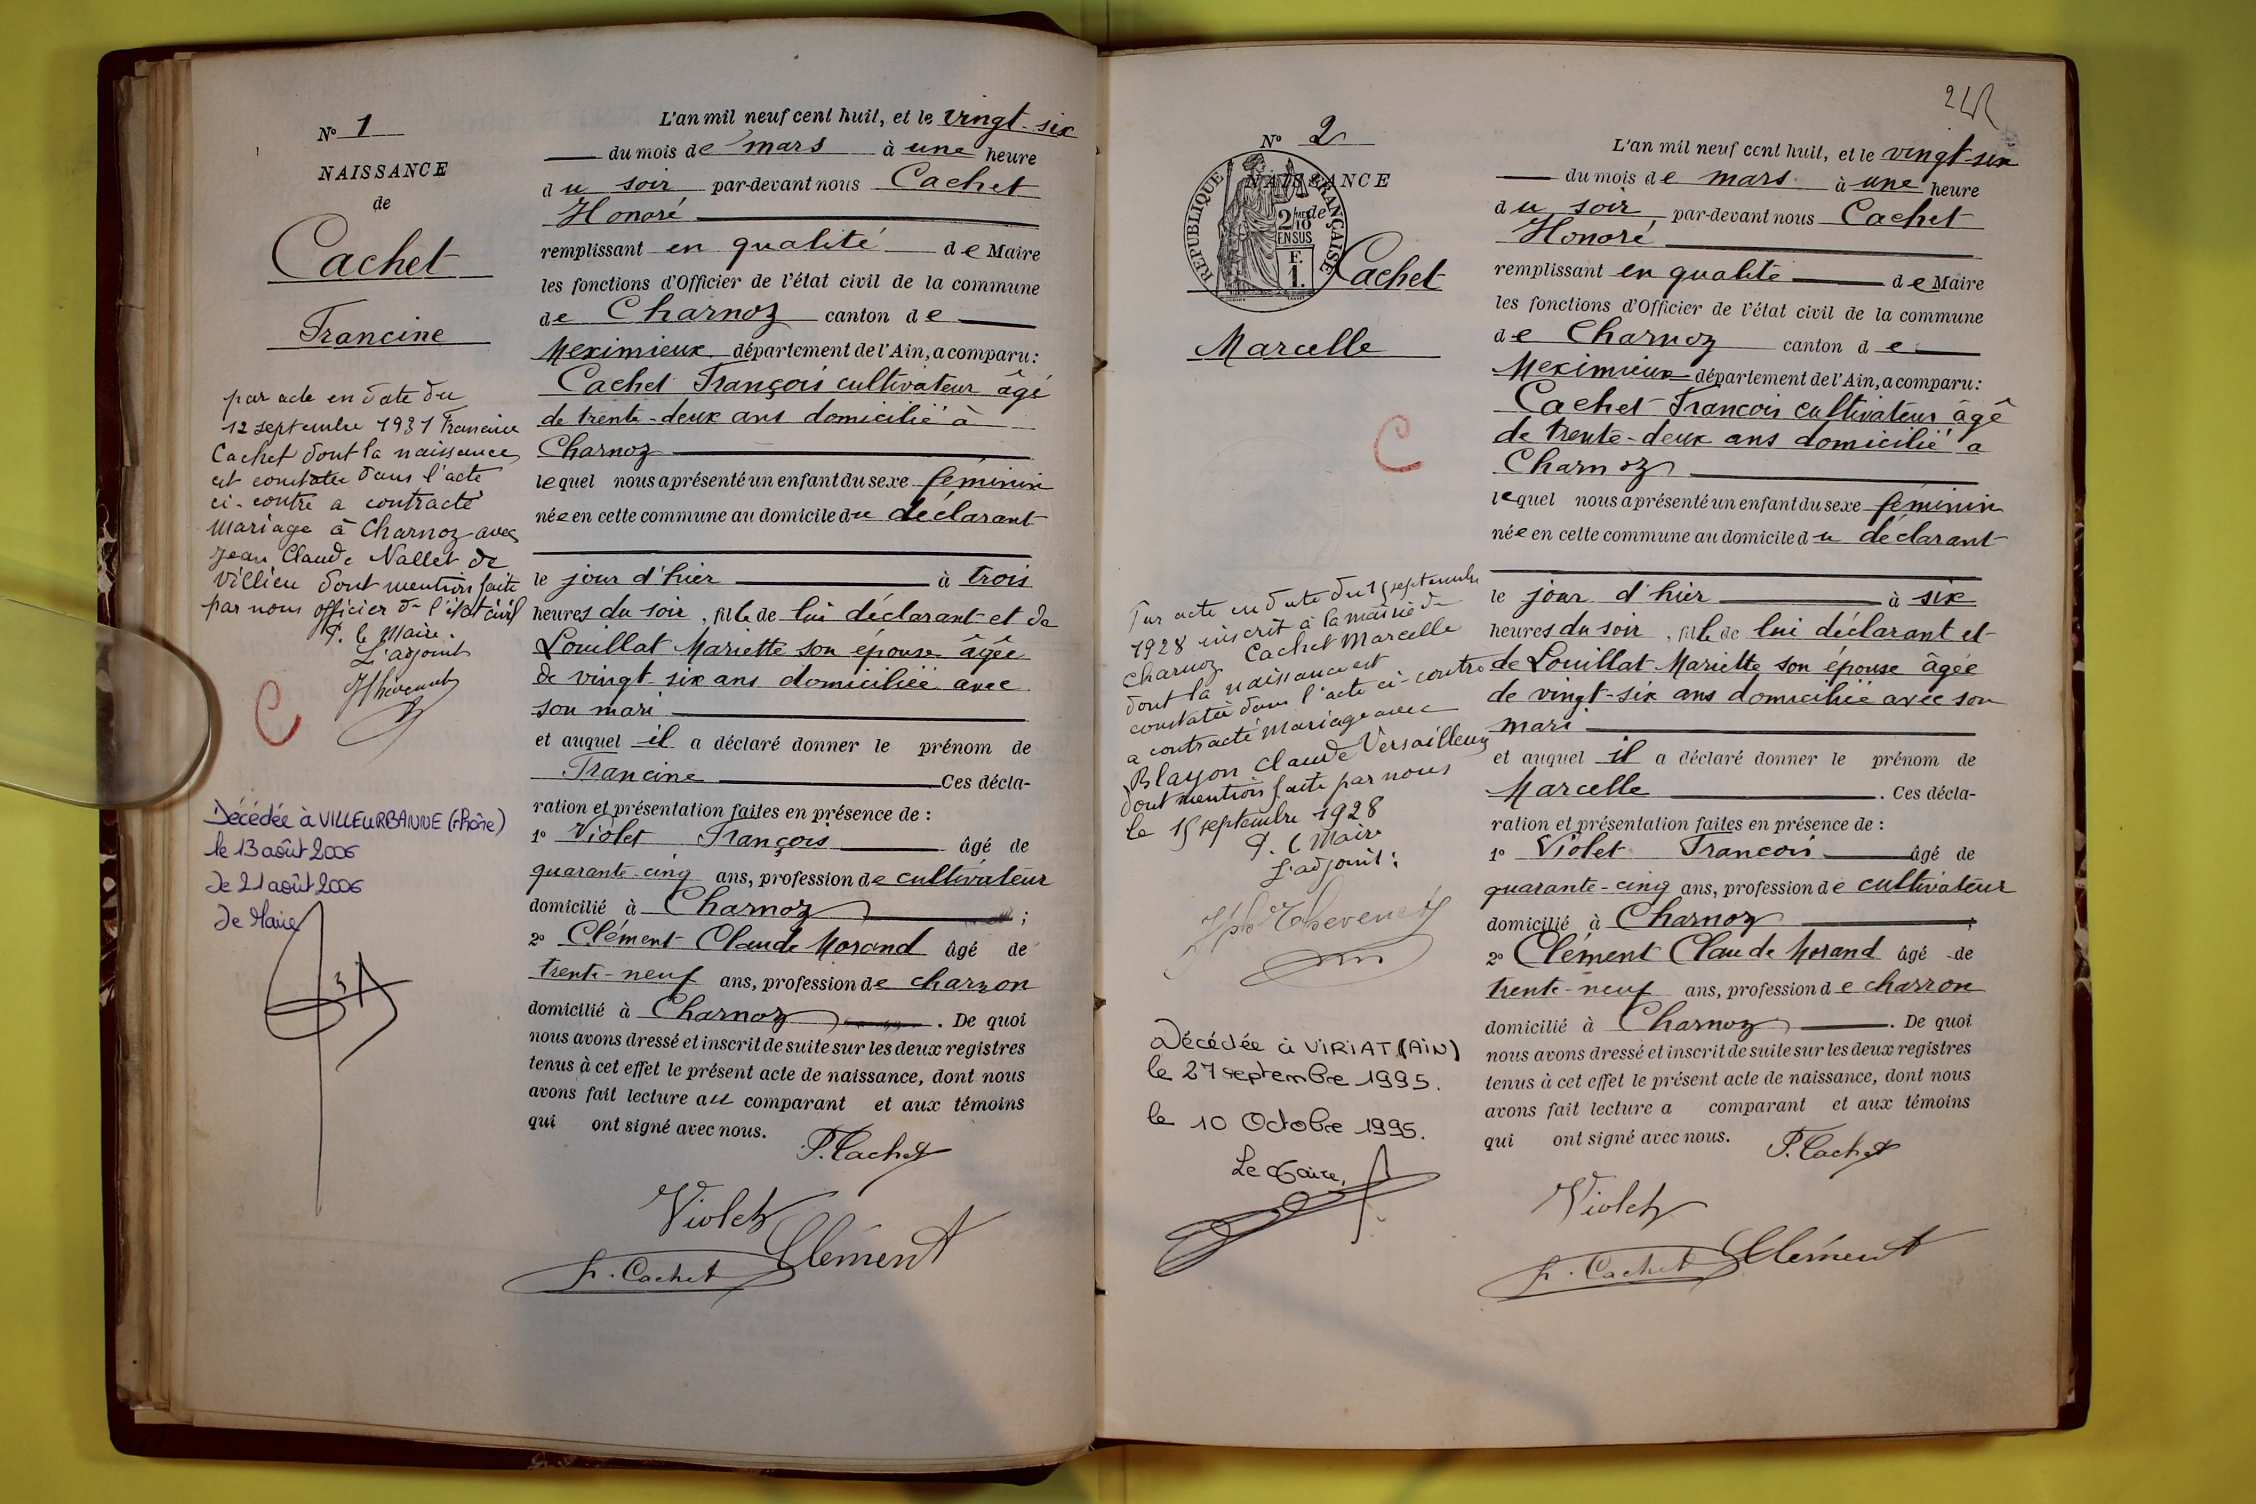 N° 1
NAISSANCE
de
Cachet
Francine
par acte en date du
12 septembre 1931 Francine
Cachet dont la naissance
est constatée dans l'acte
ci-contre a contracté
mariage à Charnoz avec
Jean Claude Nallet de
Villieu dont mention faite
par nous officier de l'état civil
P. le Maire.
L'adjoint
C
Décédée à VILLEURBANNE (Rhône)
le 13 août 2006
Le 21 août 2006
Le Maire
L'an mil neuf cent huit, et le vingt-six
du mois de mars à une heure
du soir par-devant nous Cachet
Honoré
remplissant en qualité de Maire
les fonctions d'Officier de l'état civil de la commune
de Charnoz canton de
Meximieux département de l'Ain, a comparu:
Cachet François cultivateur âgé
de trente-deux ans domicilié à
Charnoz
lequel nous a présenté un enfant du sexe féminin
née en cette commune au domicile du déclarant
le jour d'hier à trois
heures du soir, fille de lui déclarant et de
Louillat Mariette son épouse âgée
de vingt-six ans domiciliée avec
son mari
et auquel il a déclaré donner le prénom de
Francine Ces décla-
ration et présentation faites en présence de :
1° Violet François âgé de
quarante-cinq ans, profession de cultivateur
domicilié à Charnoz ;
2° Clément Claude Morand âgé de
trente-neuf ans, profession de charron
domicilié à Charnoz. De quoi
nous avons dressé et inscrit de suite sur les deux registres
tenus à cet effet le présent acte de naissance, dont nous
avons fait lecture au comparant et aux témoins
qui ont signé avec nous.
F. Cachet
Violet
Clément
h. Cachet
N° 2
NAISSANCE
de
RÉPUBLIQUE FRANÇAISE
2/10
EN SUS
F.
1.
Cachet
Marcelle
C
Par acte en date du 15 septembre
1928 inscrit à la mairie de
Charnoz Cachet Marcelle
dont la naissance est
constatée dans l'acte ci-contre
a contracté mariage avec
Blayon Claude Versailleux
dont mention faite par nous
le 15 septembre 1928
P. l Maire
L'adjoint:
Thevenet
Décédée à VIRIAT (AIN)
le 27 septembre 1995.
le 10 Octobre 1995.
Le Maire,
L'an mil neuf cent huit, et le vingt-six
du mois de mars à une heure
du soir par-devant nous Cachet
Honoré
remplissant en qualité de Maire
les fonctions d'Officier de l'état civil de la commune
de Charnoz canton de
Meximieux département de l'Ain, a comparu:
Cachet Francois cultivateur âgé
de trente-deux ans domicilié a
Charnoz
lequel nous a présenté un enfant du sexe féminin
née en cette commune au domicile du déclarant
le jour d'hier à six
heures du soir, fille de lui déclarant et
de Louillat Mariette son épouse âgée
de vingt-six ans domiciliée avec son
mari
et auquel il a déclaré donner le prénom de
Marcelle. Ces décla-
ration et présentation faites en présence de :
1° Violet Francois âgé de
quarante-cinq ans, profession de cultivateur
domicilié à Charnoz ;
2° Clément Claude Morand âgé de
trente-neuf ans, profession de charron
domicilié à Charnoz. De quoi
nous avons dressé et inscrit de suite sur les deux registres
tenus à cet effet le présent acte de naissance, dont nous
avons fait lecture a comparant et aux témoins
qui ont signé avec nous.
F. Cachet
Violet
Clément
h. Cachet